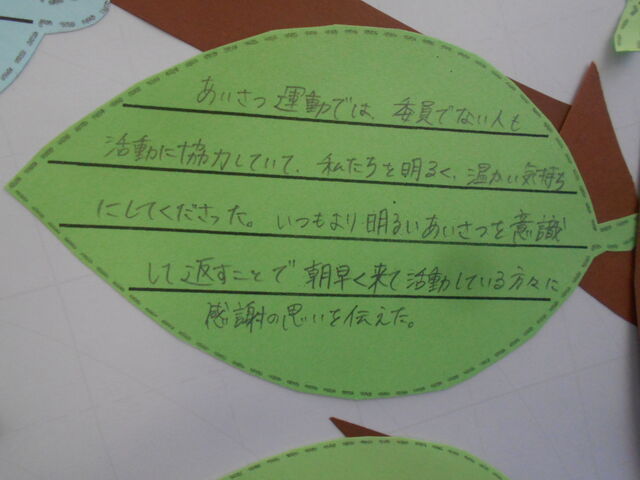 あいさつ運動では、委員でない人も
活動に協力していて、私たちを明るく、温かい気持ち
にしてくださった。いつもより明るいあいさつを意識
して返すことで朝早く来て活動している方々に
感謝の思いを伝えた。